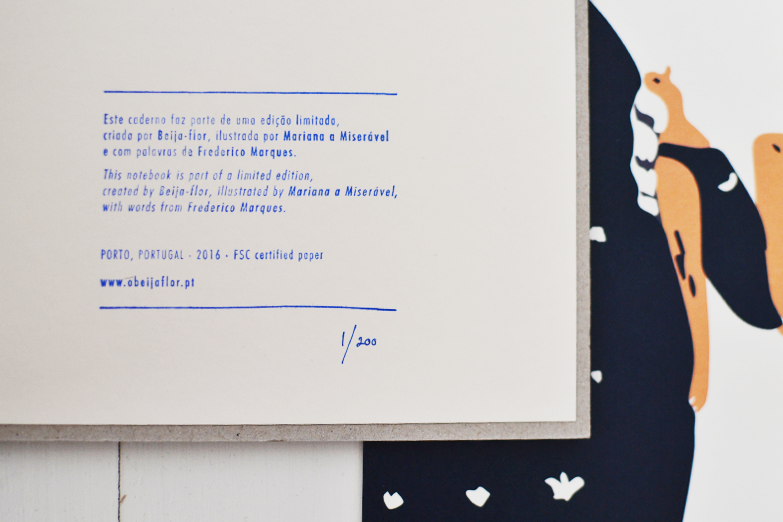 Este caderno faz parte de uma edição limitada,
criada por Beija-flor, ilustrada por Mariana a Miserável
e com palavras de Frederico Marques.
This notebook is part of a limited edition,
created by Beija-flor, illustrated by Mariana a Miserável,
with words from Frederico Marques.
PORTO, PORTUGAL · 2016 · FSC certified paper
www.abeijaflor.pt
1/200